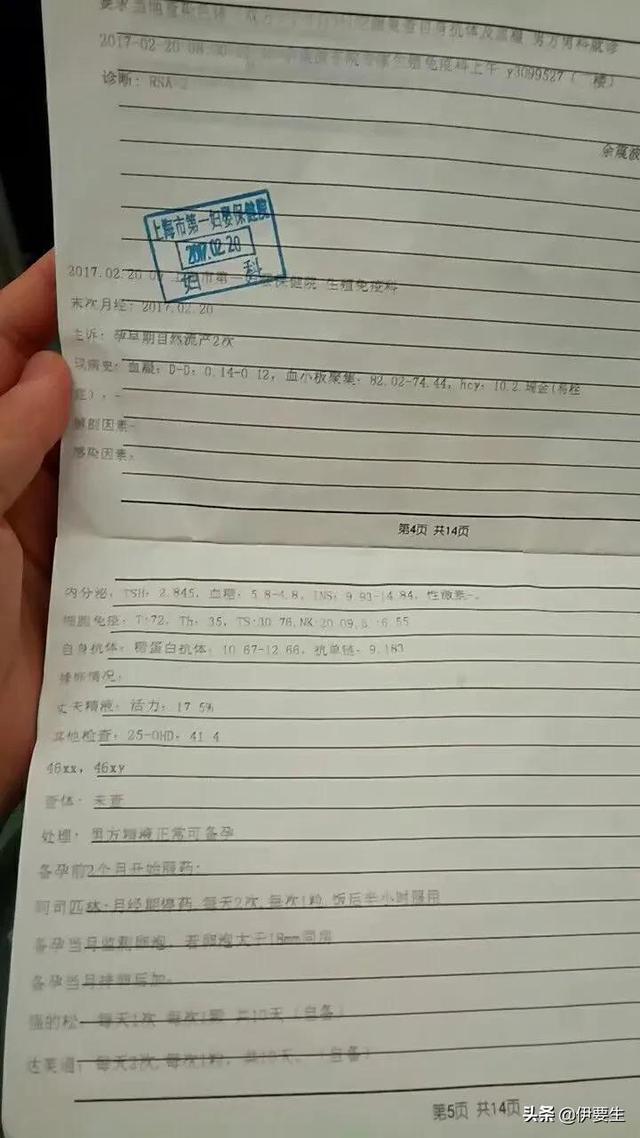 要求当地查染色体
自身抗体及血凝 男方男科就诊
2017-02-20 08
生殖免疫科上午 y3099527 ( 楼)
诊断: RSA-2
余震波
上海市第一妇婴保健院
2017.02.20
妇 科
2017.02.20 市第一 婴保健院 生殖免疫科
末次月经: 2017.02.20
主诉: 孕早期自然流产2次
现病史: 血凝: D-D: 0.14-0.12, 血小板聚集: 82.02-74.44, hcy: 10.2.瑞金(易栓
症): -
解剖因素-
感染因素:
第4页 共14页
内分泌: TSH: 2.845, 血糖: 5.8-4.8, INS: 9.93-14.84, 性激素-。
细胞免疫: T:72, Th: 35, TS:30.76,NK:20.09, :6.55
自身抗体: 糖蛋白抗体: 10.67-12.66, 抗单链: 9.183
排卵情况:
丈夫精液: 活力: 17.5%
其他检查: 25-OHD: 41.4
46xx, 46xy
查体: 未查
处理: 男方精液正常可备孕
备孕前2个月开始服药:
阿司匹林:月经期停药,每天2次,每次1粒,饭后半小时服用
备孕当月监测卵泡, 若卵泡大于18mm同房
备孕当月排卵后加:
强的松: 每天1次,每次1颗,共10天 (自备)
达芙通: 每天2次,每次1粒, 共10天, (自备)
第5页 共14页
头条 @伊要生